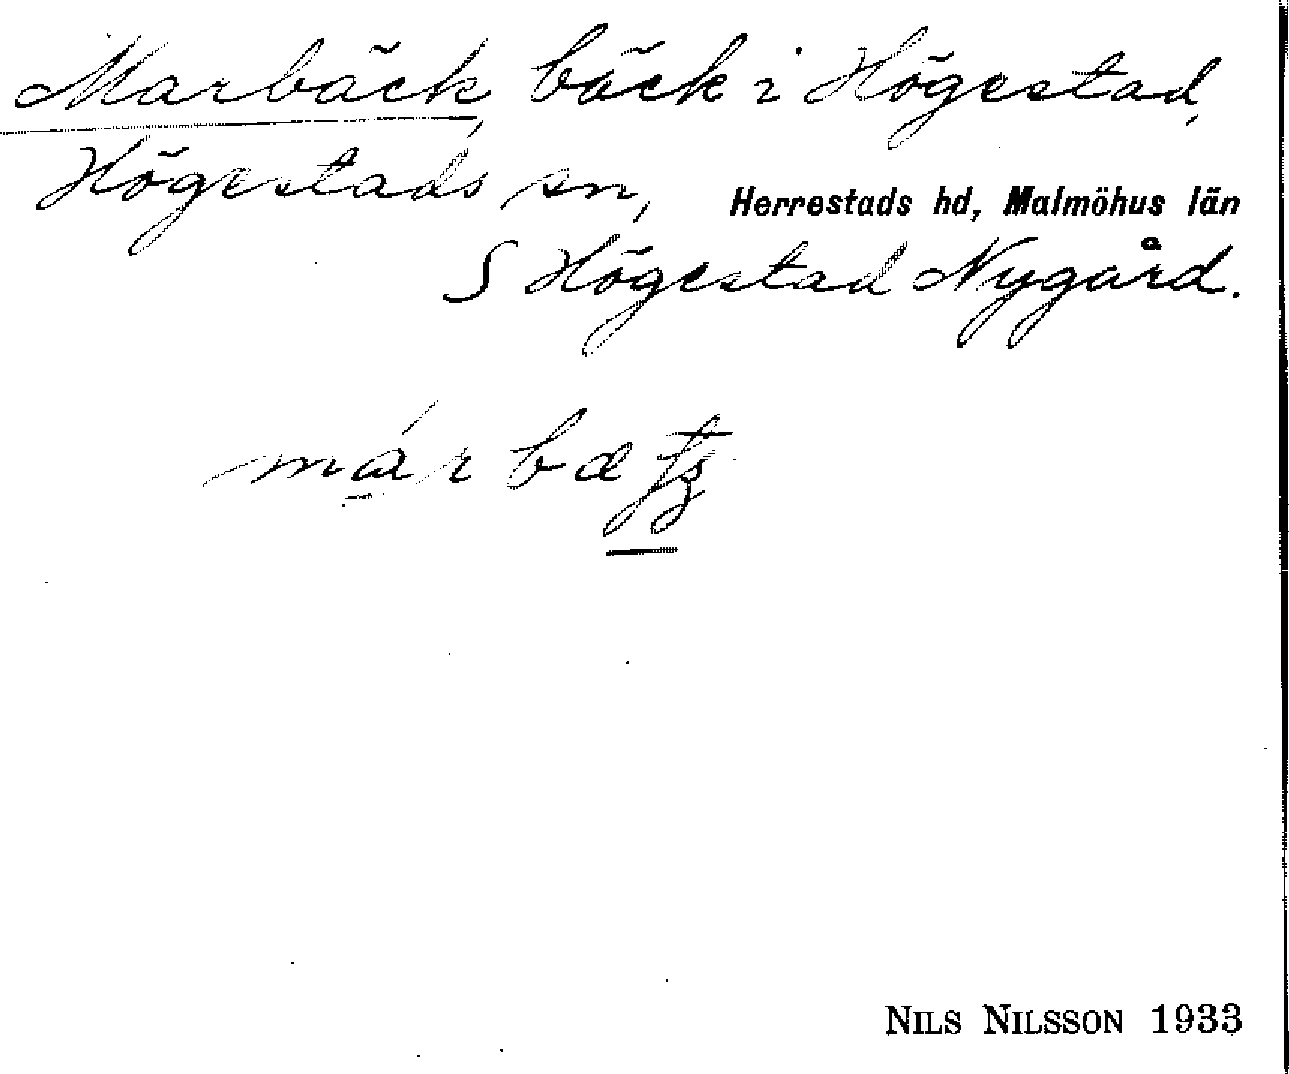 Marbäck, bäck i Högestad,
Högestads sn, Herrestads hd, Malmöhus län
S Högestad Nygård.
NILS NILSSON 1933